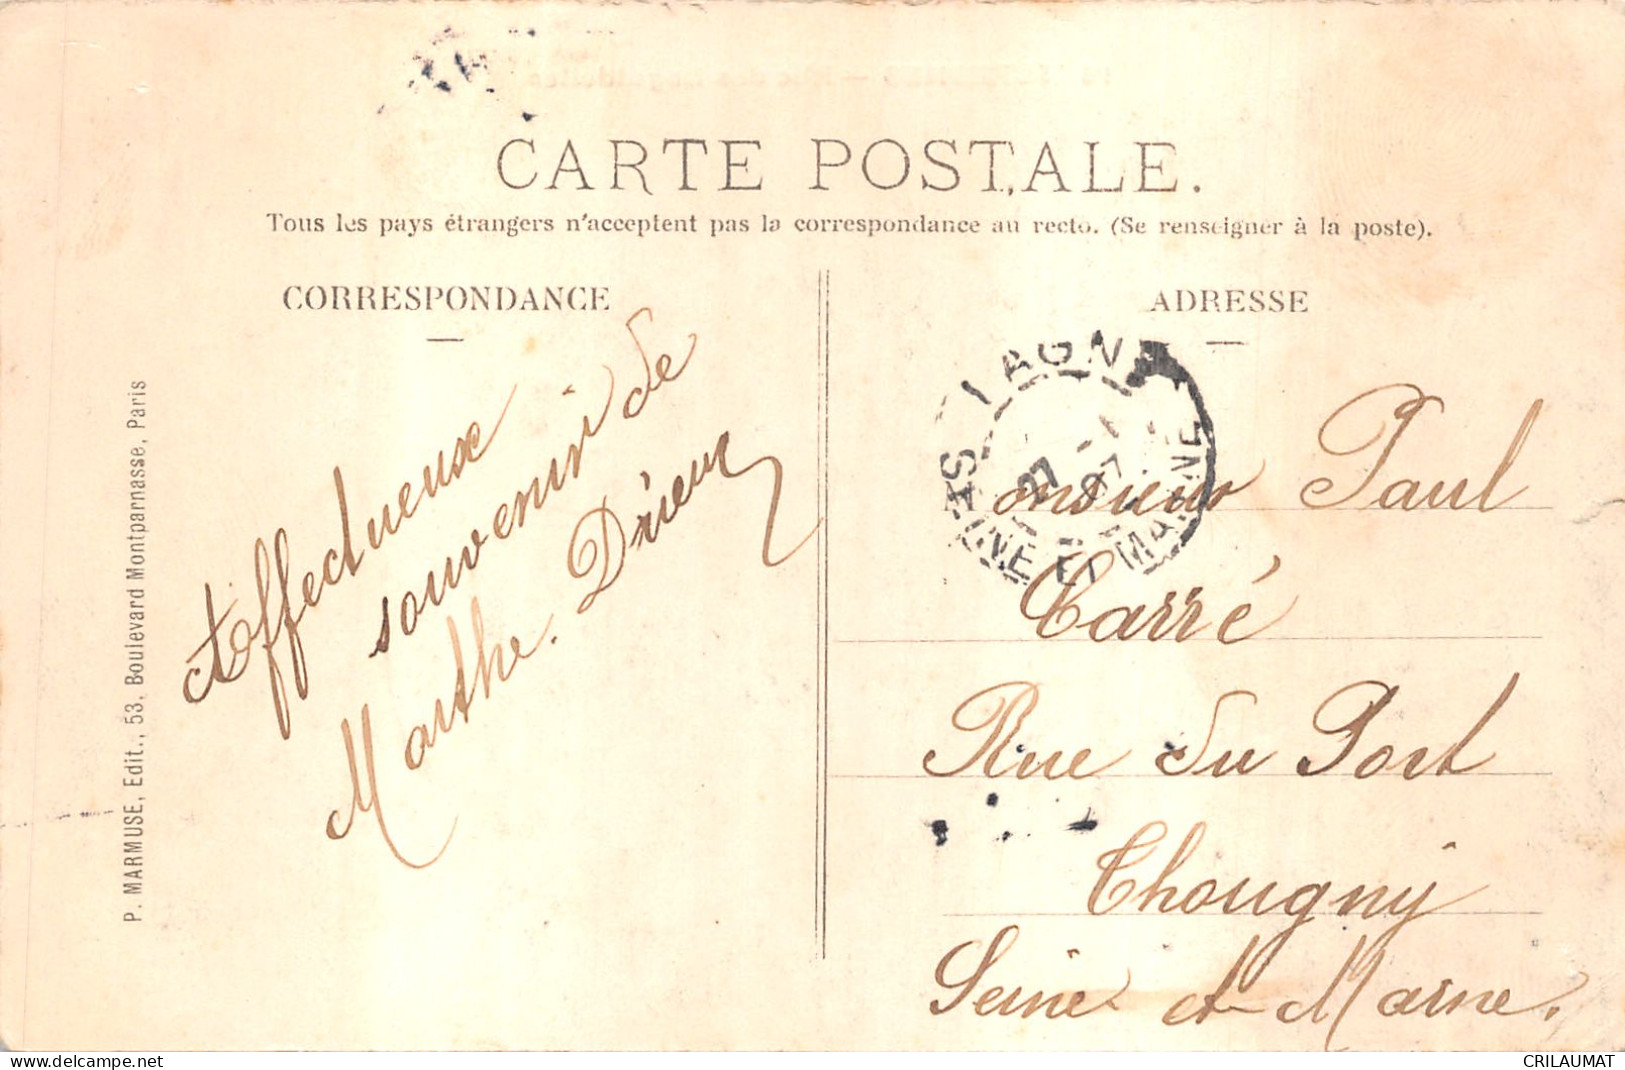 CARTE POSTALE.
Tous les pays étrangers n'acceptent pas la correspondance au recto. (Se renseigner à la poste).
CORRESPONDANCE
ADRESSE
Affectueux
souvenir de
Marthe. Drieux
P. MARMUSE, Edit., 53, Boulevard Montparnasse, Paris
LAGNY
27 - 1
07
SEINE ET MARNE
Monsieur Paul
Carré
Rue du Port
Thougny
Seine et Marne.
www.delcampe.net
CRILAUMAT